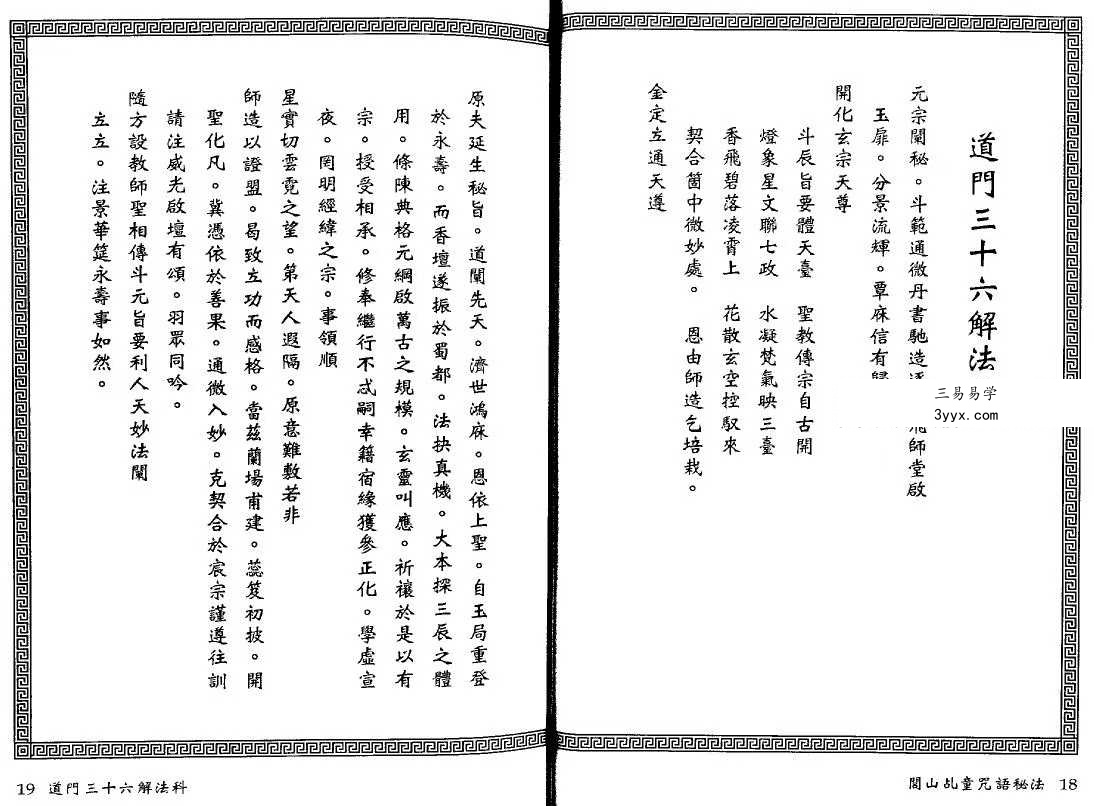 道門三十六解法
元宗闡秘。斗範通微丹書馳造
師堂啟
玉扉。分景流輝。覃庥信有歸
開化玄宗天尊
斗辰旨要體天臺 聖教傳宗自古開
燈象星文聯七政 水凝梵氣映三臺
香飛碧落凌霄上 花散玄空控馭來
契合箇中微妙處。 恩由師造乞培栽。
金定立通天遵
三易易学
3yyx.com
閭山乩童咒語秘法 18
原夫延生秘旨。道闡先天。濟世鴻庥。恩依上聖。自玉局重登
於永壽。而香壇遂振於蜀都。法抉真機。大本探三辰之體
用。條陳典格元綱啟萬古之規模。玄靈叫應。祈禳於是以有
宗。授受相承。修奉繼行不忒嗣幸籍宿緣獲參正化。學虛宣
夜。罔明經緯之宗。事領順
星實切雲霓之望。第天人遐隔。原意難敷若非
師造以證盟。曷致立功而感格。當茲蘭場甫建。蕊笈初披。開
聖化凡。冀憑依於善果。通微入妙。克契合於宸宗謹遵往訓
請注威光啟壇有頌。羽眾同吟。
隨方設教師聖相傳斗元旨要利人天妙法闡
立立。注景華筵永壽事如然。
19 道門三十六解法科